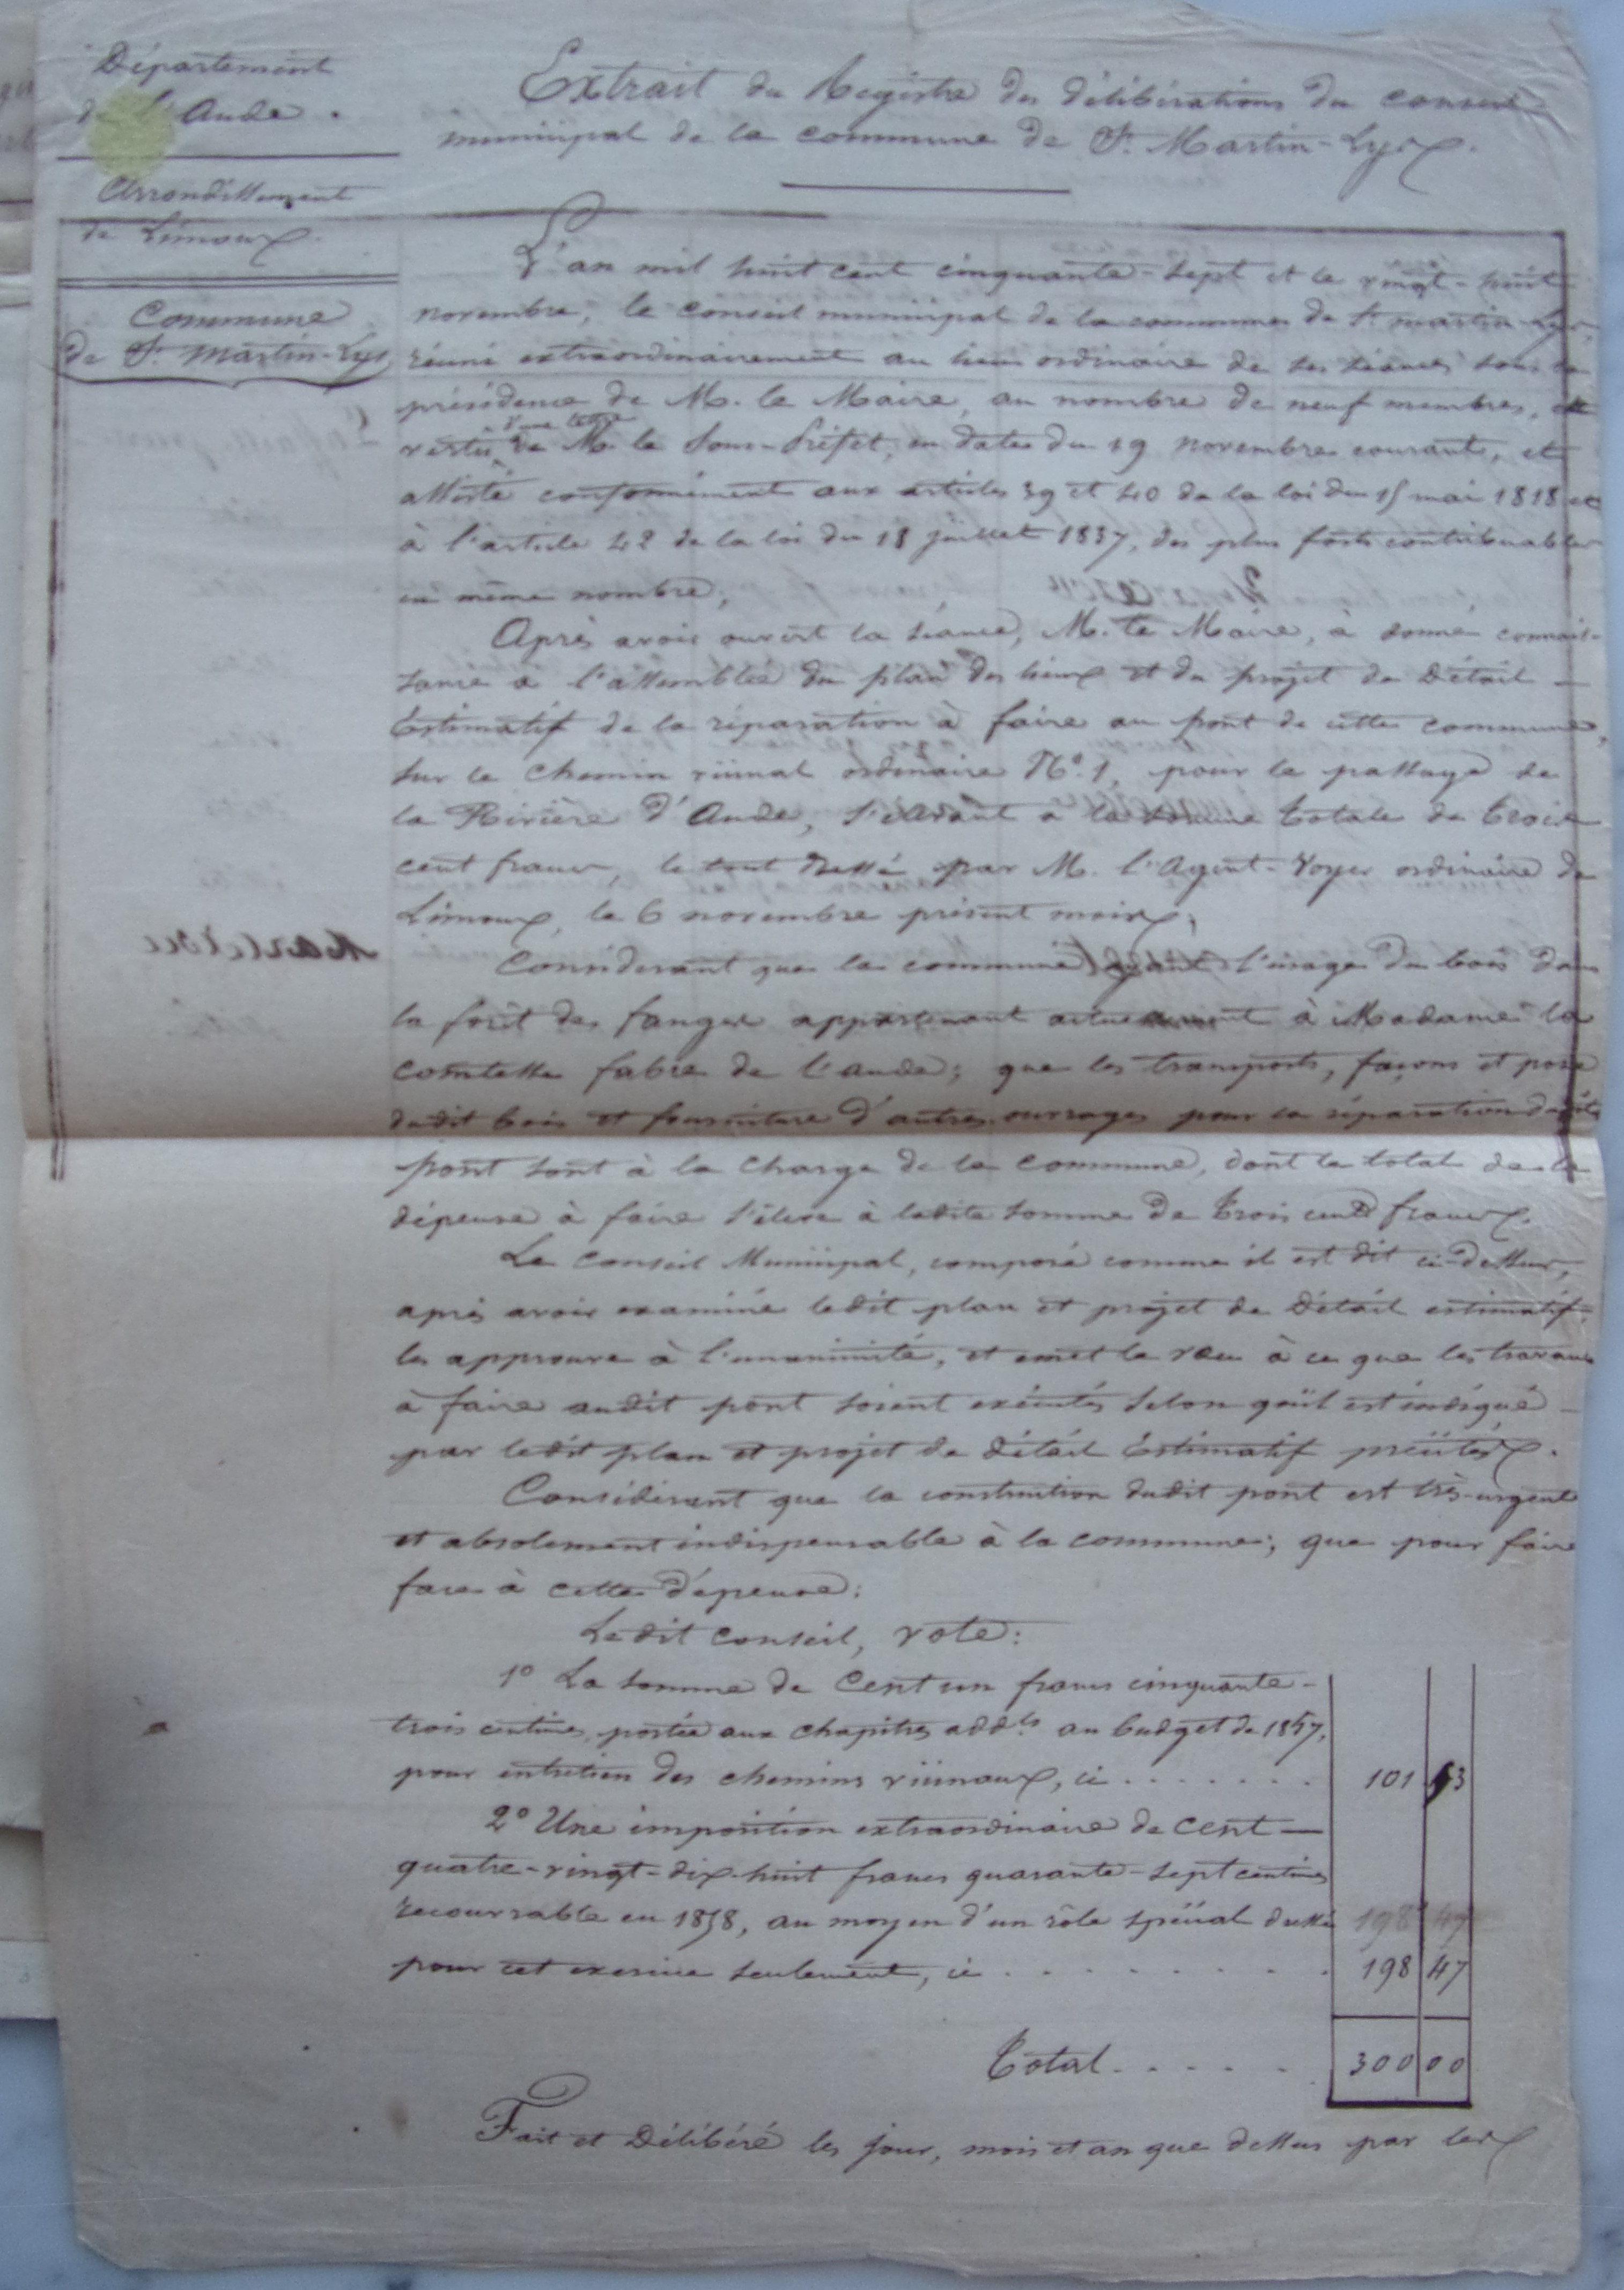 Département
de l'Aude.
Arrondissement
de Limoux.
Commune
de St. Martin-Lys
Extrait du Registre des délibérations du conseil
municipal de la commune de St. Martin-Lys.
L'an mil huit cent cinquante-sept et le vingt-huit
novembre, le conseil municipal de la commune de St. martin-Lys,
réuni extraordinairement au lieu ordinaire de ses séances sous la
présidence de M. le Maire, au nombre de neuf membres, en
vertu d'une lettre de M. le Sous-Préfet, en date du 19 novembre courant, et
assisté conformément aux articles 39 et 40 de la loi du 15 mai 1818 et
à l'article 42 de la loi du 18 juillet 1837, des plus forts contribuables
en même nombre;
Après avoir ouvert la séance, M. le Maire, à donné connais-
sance à l'assemblée du plan des lieux et du projet de Détail
Estimatif de la réparation à faire au pont de cette commune,
sur le chemin vicinal ordinaire No. 1, pour le passage de
la Rivière d'Aude, s'élevant à la somme totale de trois
cent francs, le tout dressé par M. l'Agent-Voyer ordinaire de
Limoux, le 6 novembre présent mois;
Considerant que la commune ayant l'usage du bois dans
la forêt des fanges appartenant actuellement à Madame la
comtesse fabre de l'aude; que les transports, façons et pose
dudit bois et fourniture d'autres ouvrages pour la réparation dudit
pont sont à la charge de la commune, dont le total de la
dépense à faire s'élève à ladite somme de trois cent francs.
Le Conseil Municipal, composé comme il est dit ci-dessus,
après avoir examiné ledit plan et projet de Détail estimatif,
les approuve à l'unanimité, et emet le vœu à ce que les travaux
à faire audit pont soient exécutés selon qu'il est indiqué
par ledit plan et projet de détail Estimatif précités.
Considérant que la construction dudit pont est très-urgent
et absolument indispensable à la commune; que pour faire
face à cette dépense:
Ledit conseil, vote:
1o La somme de Cent un francs cinquante-
trois centimes, portée aux chapitres addls au budget de 1857,
pour entretien des chemins vicinaux, ci . . . . . . . 101 53
2o Une imposition extraordinaire de cent
quatre-vingt-dix-huit francs quarante-sept centimes
recouvrable en 1858, au moyen d'un rôle spécial dressé 198 47
pour cet exercice seulement, ci . . . . . . . . . 198 47
Total . . . . . . 300 00
Fait et Délibéré les jour, mois et an que dessus par les